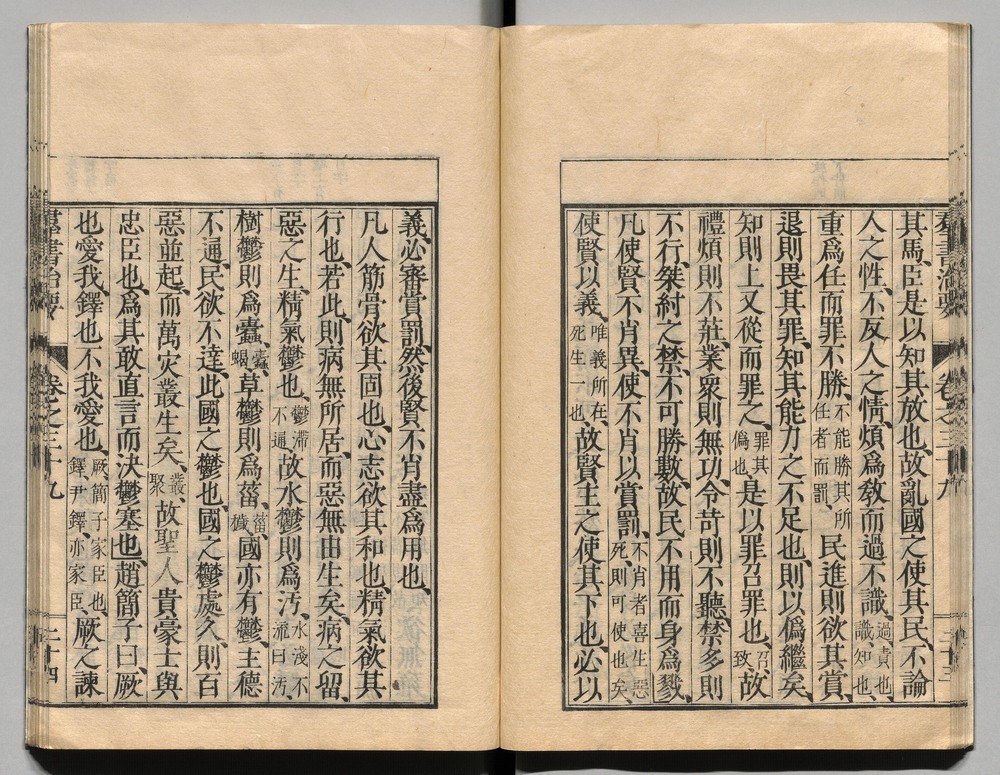 羣書治要 卷之三十九 二十三
其馬、臣是以知其放也、故亂國之使其民、不論
人之性、不反人之情、煩爲敎而過不識、過責也、識、知也、
重爲任而罪不勝、不能勝其所任者而罰、民進則欲其賞、
退則畏其罪、知其能力之不足也、則以僞繼矣、
知則上又從而罪之、罪其僞也、是以罪召罪也、召致、故
禮煩則不莊、業衆則無功、令苛則不聽、禁多則
不行、桀紂之禁、不可勝數、故民不用而身爲戮、
凡使賢不肖異、使不肖以賞罰、不肖者喜生惡死、則可使也矣、
使賢以義、唯義所在、死生一也、故賢主之使其下也、必以
義、必審賞罰、然後賢不肖盡爲用也、
凡人筋骨欲其固也、心志欲其和也、精氣欲其
行也、若此、則病無所居、而惡無由生矣、病之留、
惡之生、精氣鬱也、鬱滯不通、故水鬱則爲汚、水淺不流曰汚、
樹鬱則爲蠹、蠹、蝎、草鬱則爲菑、菑、穢、國亦有鬱、主德
不通、民欲不達、此國之鬱也、國之鬱處久、則百
惡並起、而萬灾叢生矣、叢、聚、故聖人貴豪士與
忠臣也、爲其敢直言而決鬱塞也、趙簡子曰、厥
也愛我、鐸也不我愛也、厥、簡子家臣也、鐸、尹鐸、亦家臣、厥之諫
羣書治要 卷之三十九 二十四